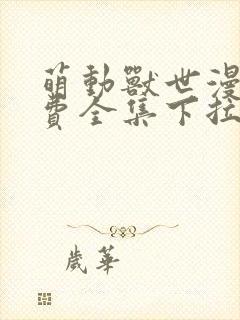 萌動獸世漫
費全集下拉
歲華